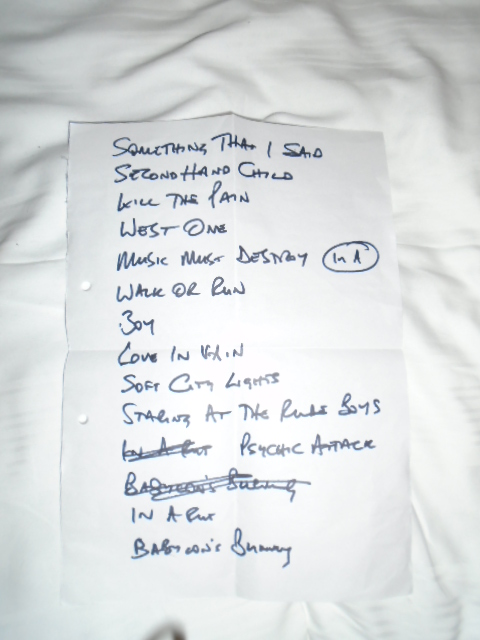 SOMETHING THAT I SAID
SECONDHAND CHILD
KILL THE PAIN
WEST ONE
MUSIC MUST DESTROY (IN A)
WALK OR RUN
BOY
LOVE IN VAIN
SOFT CITY LIGHTS
STARING AT THE RUDE BOYS
IN A RUT PSYCHIC ATTACK
BABYLON'S BURNING
IN A RUT
BABYLON'S BURNING